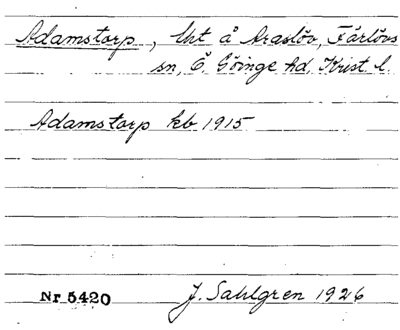 Adamstorp, lht å Araslöv, Färlövs
sn, Ö. Göinge hd, Krist. l.
Adamstorp kb 1915
Nr 5420 J. Sahlgren 1926